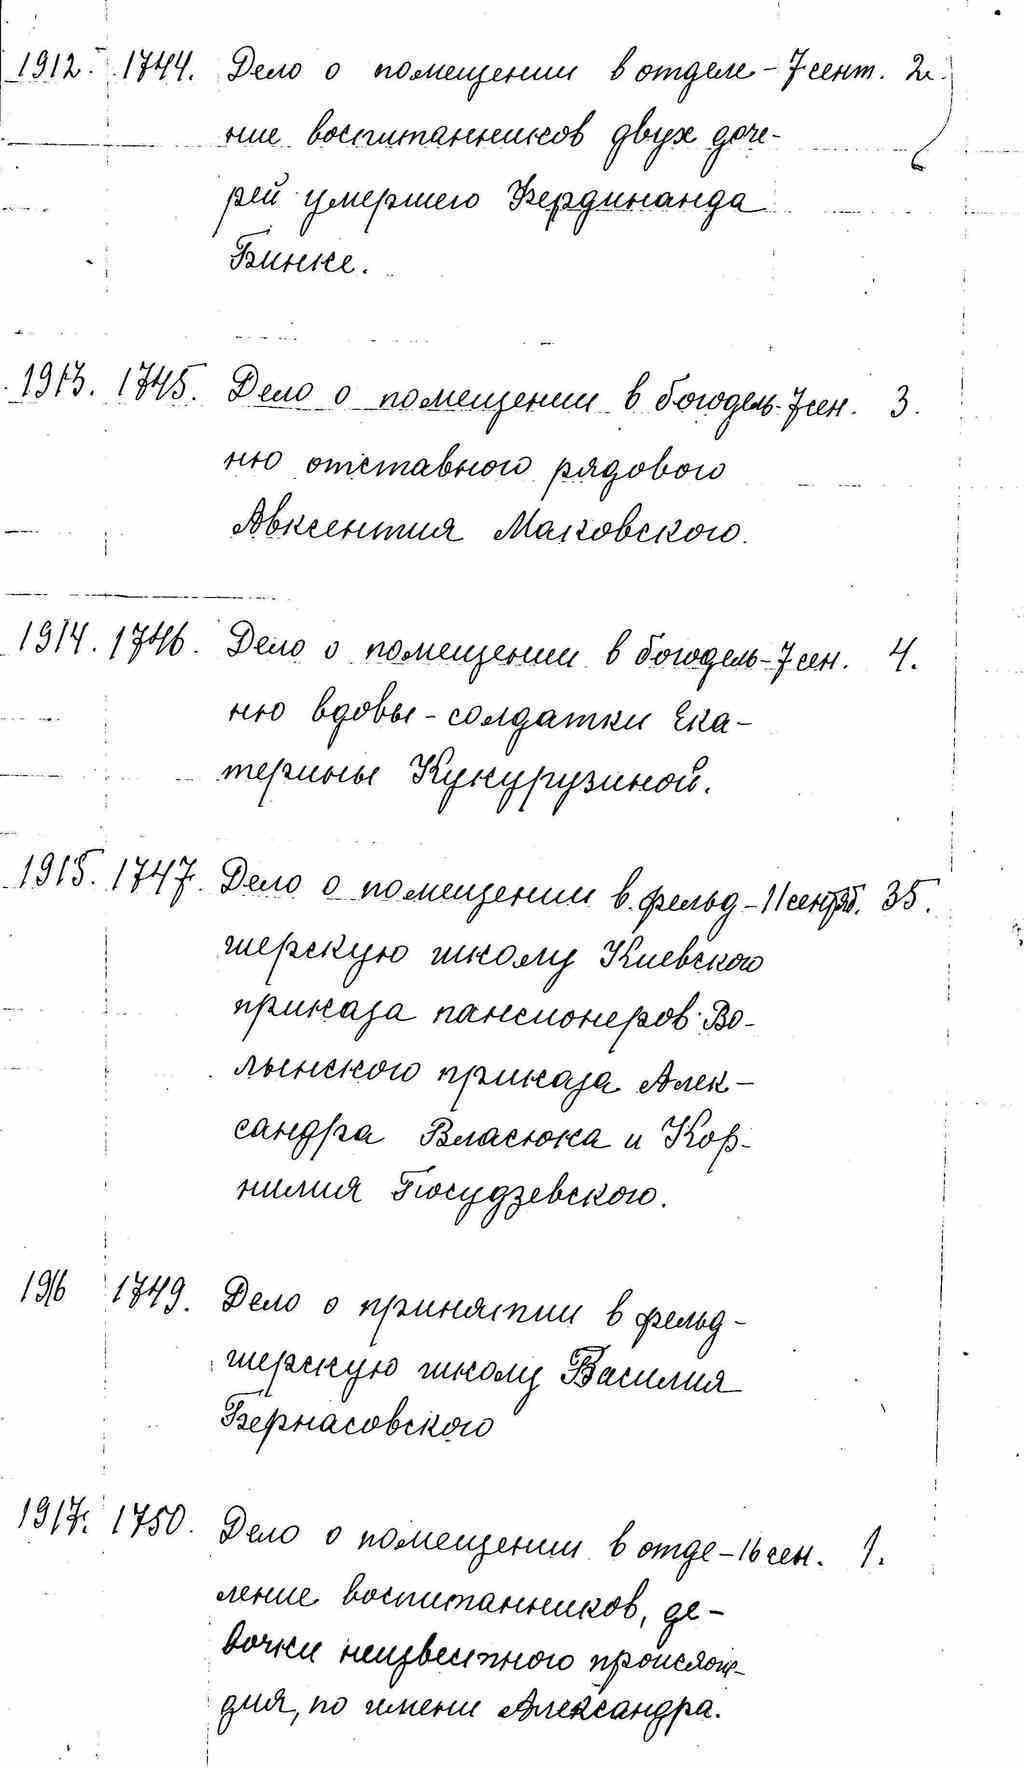 1912. 1744. Дело о помещении в отделе- 7 сент. 2.
ние воспитанников двух доче-
рей умершего Фердинанда
Бинке.
1913. 1745. Дело о помещении в богодель- 7 сен. 3.
ню отставного рядового
Авксентия Маковского.
1914. 1746. Дело о помещении в богодель- 7 сен. 4.
ню вдовы-солдатки Ека-
терины Кукурузиной.
1915. 1747. Дело о помещении в фельд- 11 сентяб. 35.
шерскую школу Киевского
приказа пансионеров Во-
лынского приказа Алек-
сандра Власюка и Кор-
нилия Госудзевского.
1916 1749. Дело о принятии в фельд-
шерскую школу Василия
Бернасовского
1917. 1750. Дело о помещении в отде- 16 сен. 1.
ление воспитанников, де-
вочки неизвестного происхож-
дия, по имени Александра.